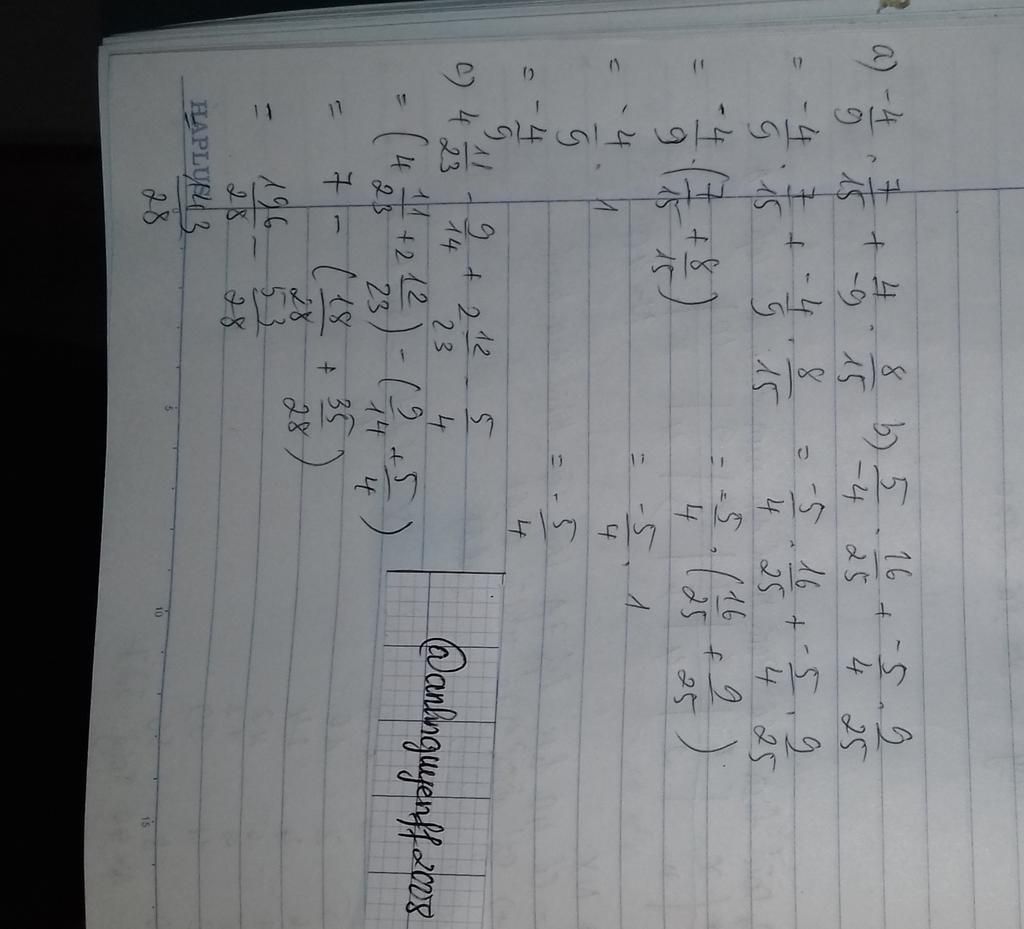 a) -4/9 . 7/15 + 4/-9 . 8/15
= -4/9 . 7/15 + -4/9 . 8/15
= -4/9 . (7/15 + 8/15)
= -4/9 . 1
= -4/9
b) 5/-4 . 16/25 + -5/4 . 9/25
= -5/4 . 16/25 + -5/4 . 9/25
= -5/4 . (16/25 + 9/25)
= -5/4 . 1
= -5/4
c) 4 11/23 - 9/14 + 2 12/23 - 5/4
= (4 11/23 + 2 12/23) - (9/14 + 5/4)
= 7 - (18/28 + 35/28)
= 196/28 - 53/28
= 143/28
@anhnguyenff2008
HAPLUS
5 10 15